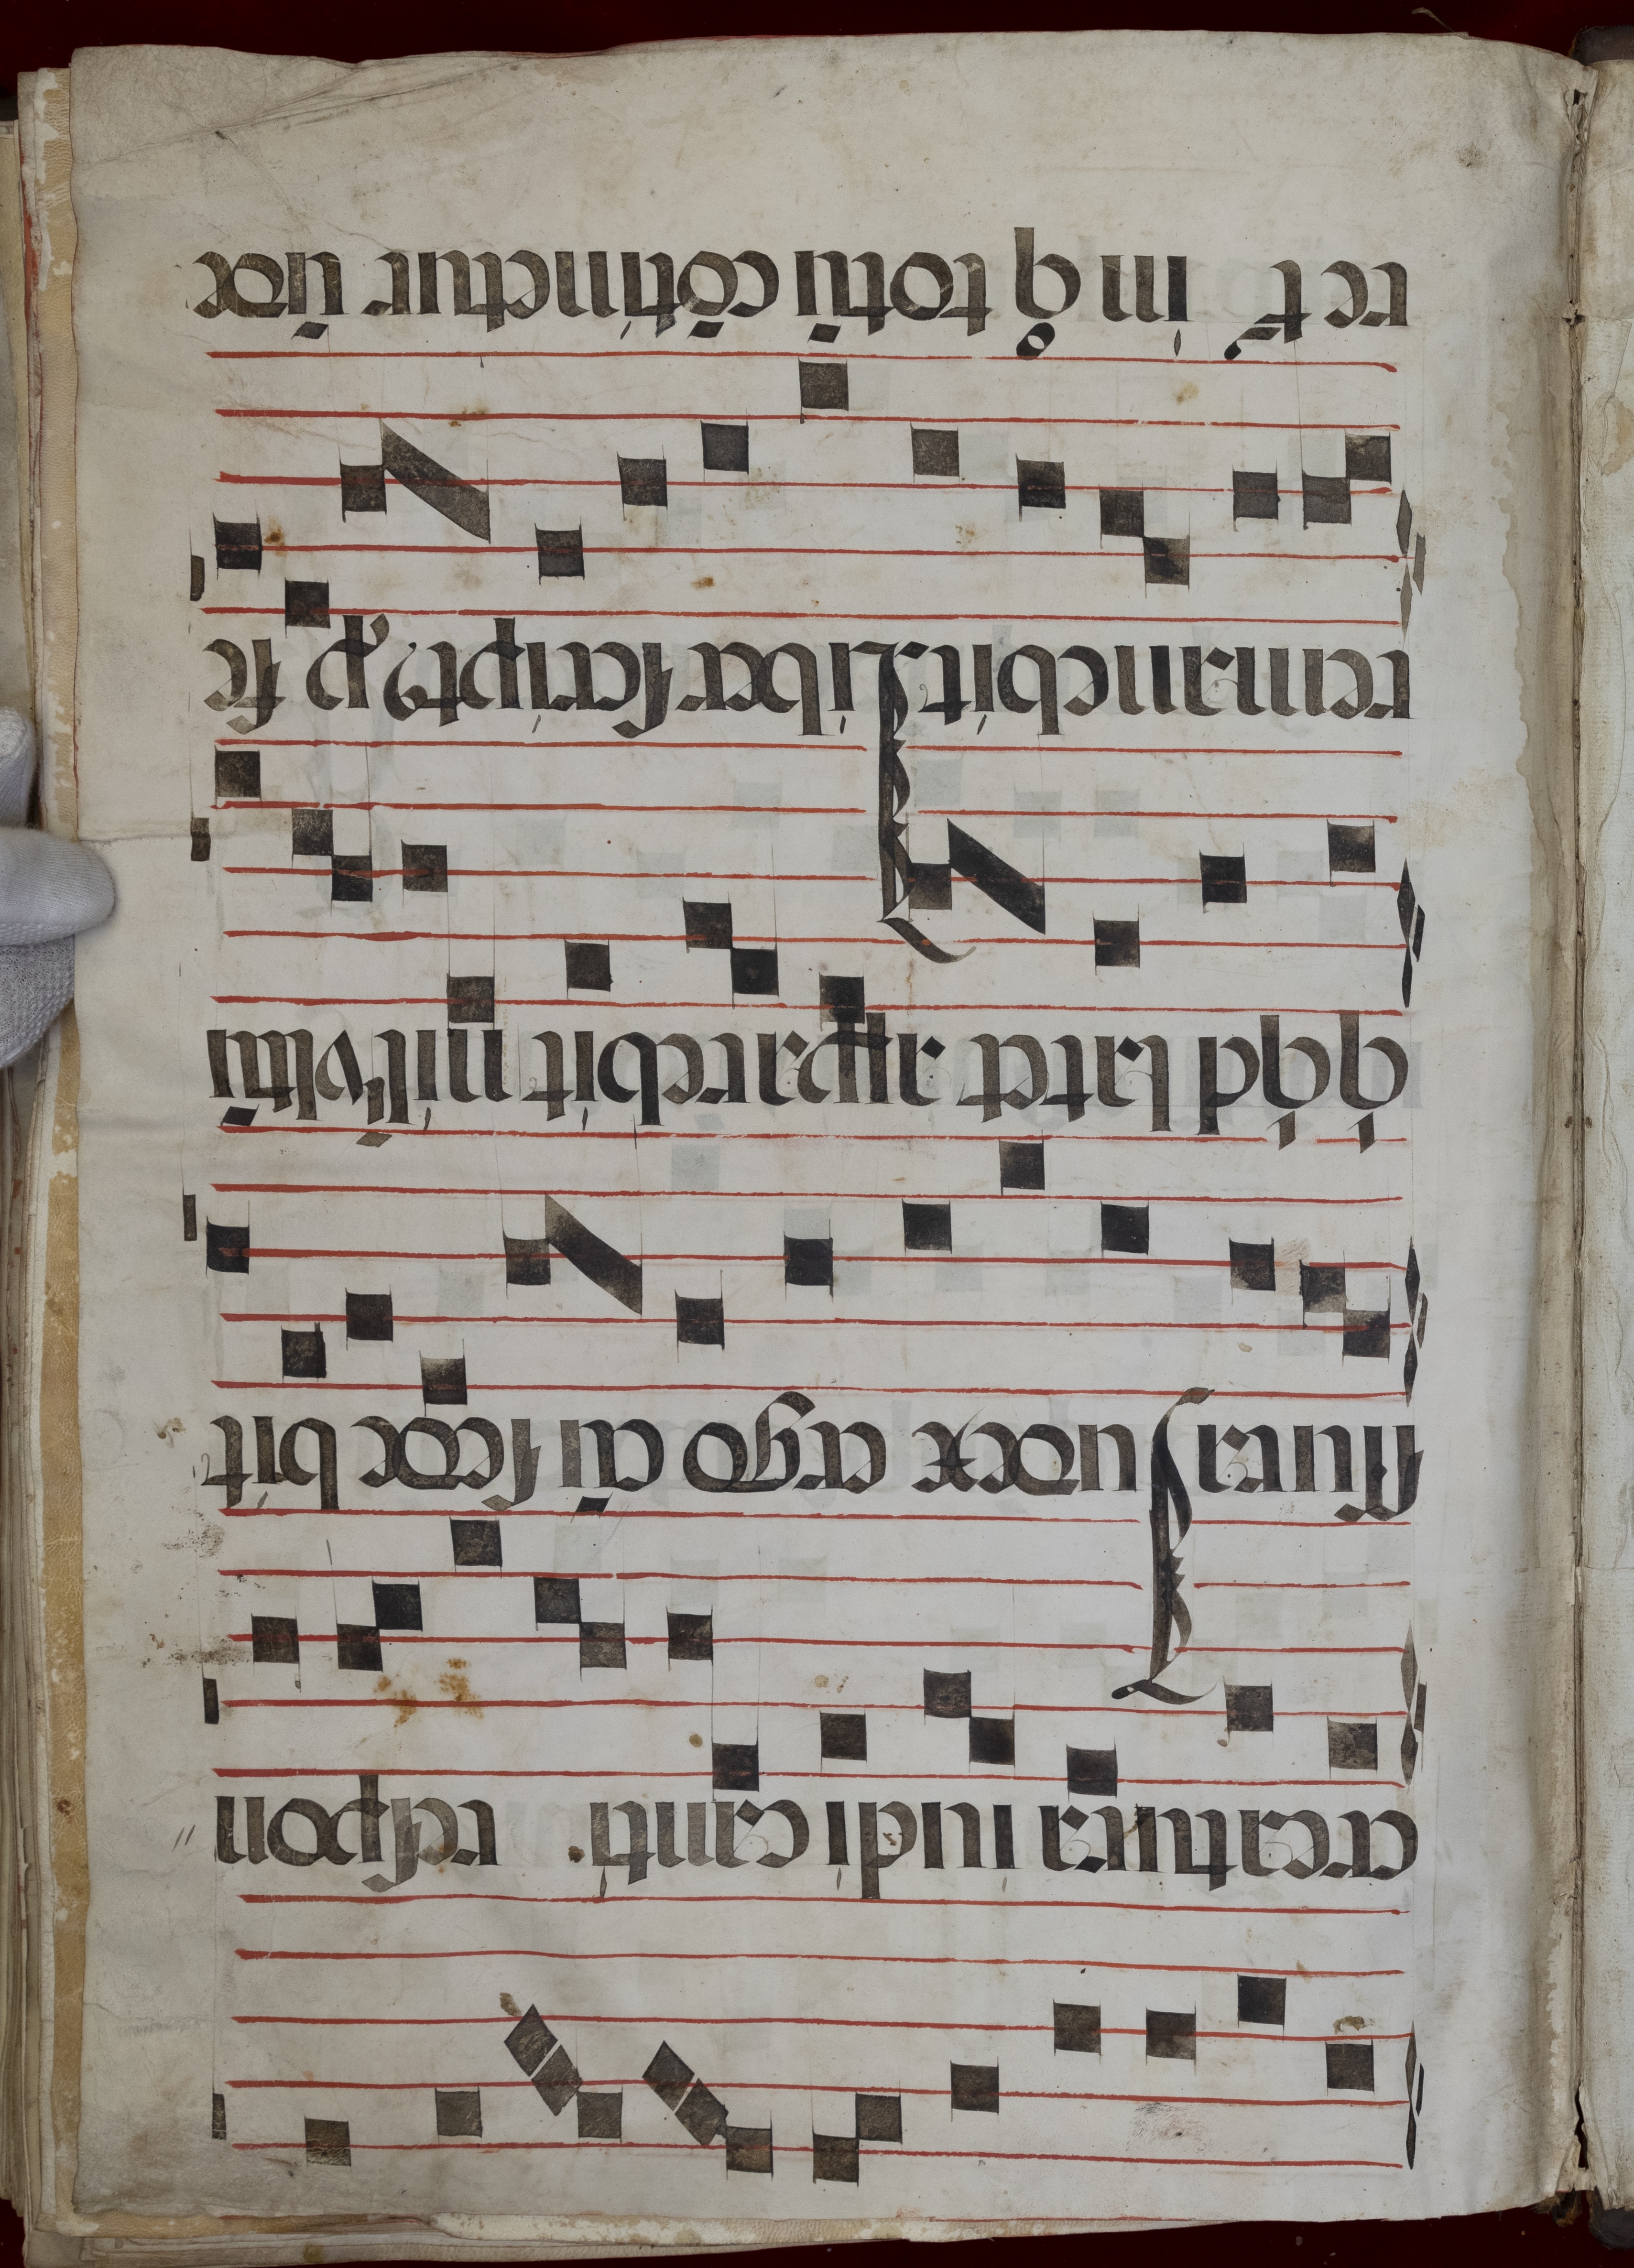 creatura iudi canti. respon
ssura Iudex ergo cū sede bit
q̇q̇d latet apparebit nil vltū
remanebit Liber scriptꝰ ꝓ fe
ret᷒ in qͦ totū cōtinetur ūde